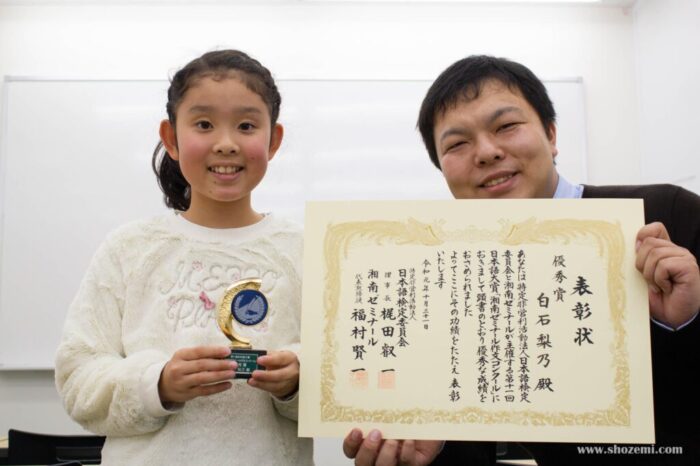 表彰状
優秀賞
白石 梨乃 殿
あなたは特定非営利活動法人日本語検定
委員会と湘南ゼミナールが主催する第十一回
日本語大賞「湘南ゼミナール作文コンクール」に
おきまして頭書のとおり優秀な成績を
おさめられました
よってここにその功績をたたえ表彰
いたします
令和元年十月三十一日
特定非営利活動法人
日本語検定委員会
理事長 梶田叡一
湘南ゼミナール
代表取締役 福村賢一
www.shozemi.com